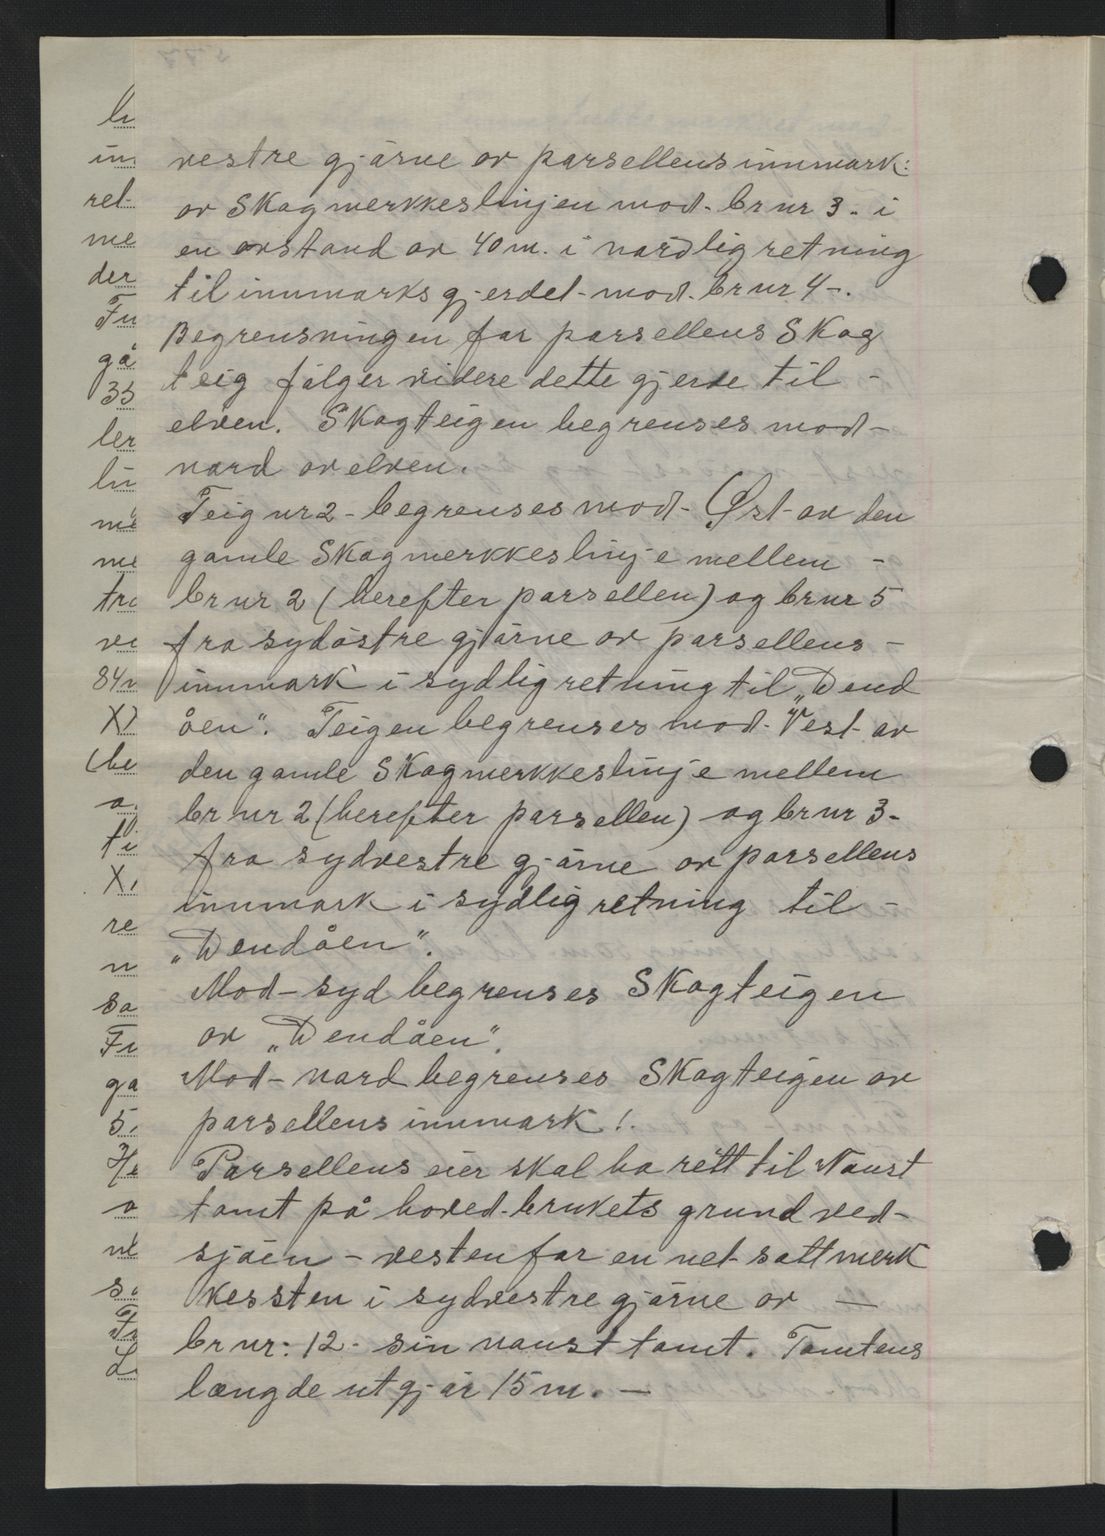 vestre gjørne av parsellens innmark:
av Skogmerkkeslinjen mod. br nr 3. i
en avstand av 40 m. i nordlig retning
til innmarksgjerdet mod. br nr 4-.
Begrensningen for parsellens Skog
teig følger videre dette gjerde til -
elven. Skogteigen begrenses mod-
nord av elven.
Teig nr 2 - begrenses mod- Øst av den
gamle Skogmerkkeslinje mellem -
br nr 2 (herefter parsellen) og br nr 5
fra sydøstre gjørne av parsellens -
innmark i sydlig retning til „Dend
åen“. Teigen begrenses mod- Vest av
den gamle Skogmerkkeslinje mellem
br nr 2 (herefter parsellen) og br nr 3-
fra sydvestre gjørne av parsellens
innmark i sydlig retning til -
„Dendåen“.
Mod- syd begrenses Skogteigen
av „Dendåen“.
Mod- nord begrenses Skogteigen av
parsellens innmark!.
Parsellens eier skal ha rett til Naust
tomt på hoved-brukets grund ved-
sjøen - vestenfor en net satt merk
kessten i sydvestre gjørne av —
br nr: 12- sin naust tomt. Tomtens
længde utgjør 15 m. —
ret-
me
der
Fu
gå
35
ler
li
me
me
tre
ve
84
X)
(be
a
ti
X
re
n
sa
Fu
ga
5.
He